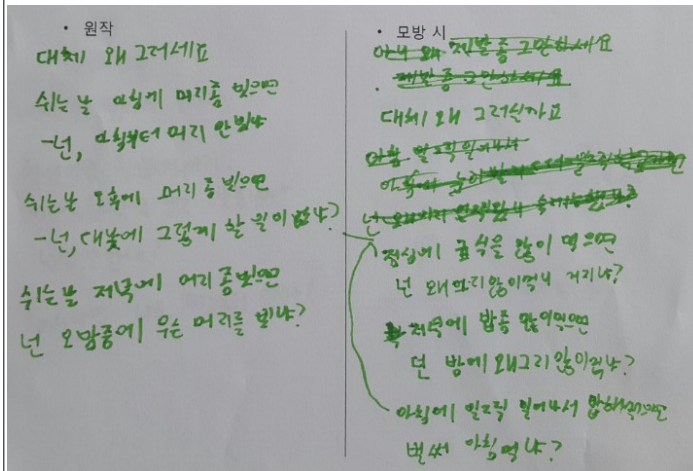 • 원작
대체 왜 그러세요
쉬는날 아침에 머리좀 빗으면
-넌, 아침부터 머리 안빗냐
쉬는날 오후에 머리좀 빗으면
-넌, 대낮에 그렇게 할 일이 없냐?
쉬는날 저녁에 머리좀빗으면
넌 오밤중에 무슨 머리를 빗냐?
• 모방 시
아니 왜 제발 좀 그만하세요
제발 좀 그만하세요
대체 왜 그러실까요
점심에 급식을 많이 먹으면
넌 왜 많이먹냐 거리냐?
저녁에 밥좀 많이먹으면
넌 밤에 왜그리 많이먹냐?
아침에 일찍 일어나서 밥해먹으면
벌써 아침 먹냐?